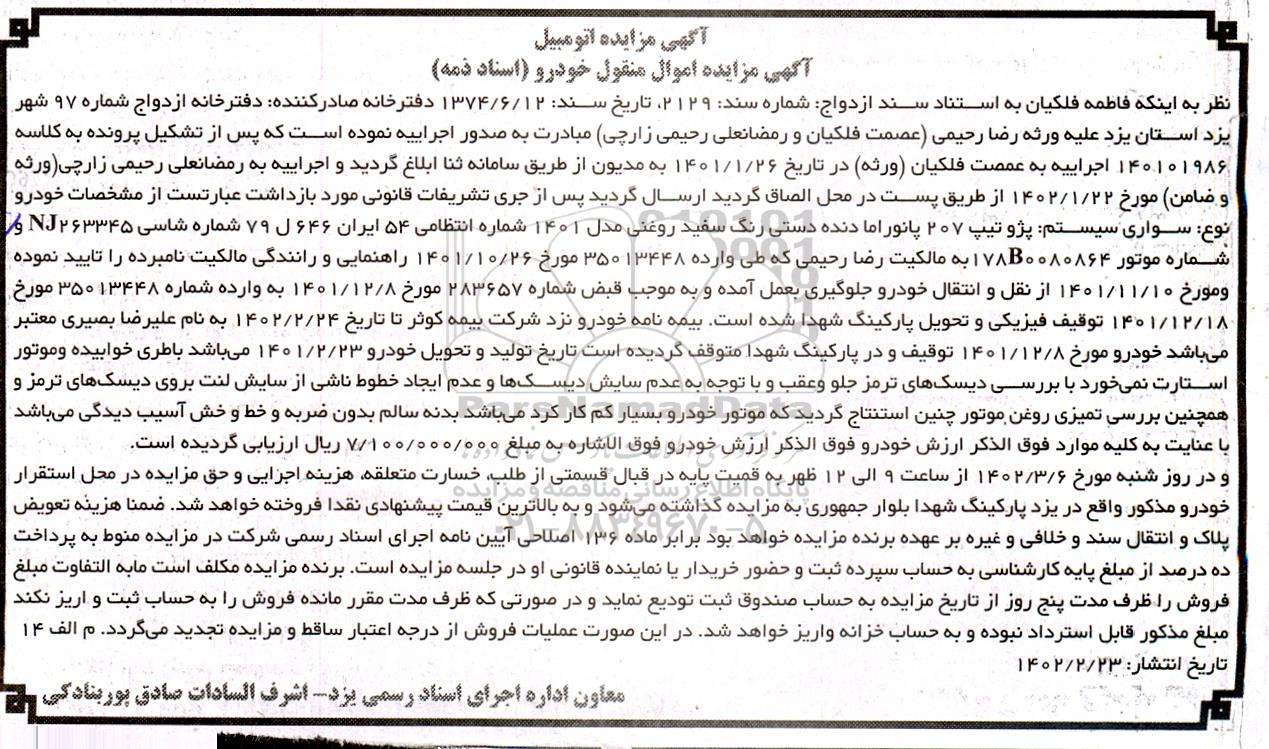 آگهی مزایده اتومبیل
آگهی مزایده اموال منقول خودرو (اسناد ذمه)
نظر به اینکه فاطمه فلکیان به استناد سند ازدواج: شماره سند: ۲۱۲۹، تاریخ سند: ۱۳۷۴/۶/۱۲ دفترخانه صادرکننده: دفترخانه ازدواج شماره ۹۷ شهر
یزد استان یزد علیه ورثه رضا رحیمی (عصمت فلکیان و رمضانعلی رحیمی زارچی) مبادرت به صدور اجراییه نموده است که پس از تشکیل پرونده به کلاسه
۱۴۰۱۰۱۹۸۶ اجراییه به عمصت فلکیان (ورثه) در تاریخ ۱۴۰۱/۱/۲۶ به مدیون از طریق سامانه ثنا ابلاغ گردید و اجراییه به رمضانعلی رحیمی زارچی(ورثه
و ضامن) مورخ ۱۴۰۲/۱/۲۲ از طریق پست در محل الصاق گردید ارسال گردید پس از جری تشریفات قانونی مورد بازداشت عبارتست از مشخصات خودرو
نوع: سواری سیستم: پژو تیپ ۲۰۷ پانوراما دنده دستی رنگ سفید روغنی مدل ۱۴۰۱ شماره انتظامی ۵۴ ایران ۶۴۶ ل ۷۹ شماره شاسی NJ۲۶۳۳۴۵ و
شماره موتور ۱۷۸B۰۰۸۰۸۶۴به مالکیت رضا رحیمی که طی وارده ۳۵۰۱۳۴۴۸ مورخ ۱۴۰۱/۱۰/۲۶ راهنمایی و رانندگی مالکیت نامبرده را تایید نموده
ومورخ ۱۴۰۱/۱۱/۱۰ از نقل و انتقال خودرو جلوگیری بعمل آمده و به موجب قبض شماره ۲۸۳۶۵۷ مورخ ۱۴۰۱/۱۲/۸ به وارده شماره ۳۵۰۱۳۴۴۸ مورخ
۱۴۰۱/۱۲/۱۸ توقیف فیزیکی و تحویل پارکینگ شهدا شده است. بیمه نامه خودرو نزد شرکت بیمه کوثر تا تاریخ ۱۴۰۲/۲/۲۴ به نام علیرضا بصیری معتبر
می‌باشد خودرو مورخ ۱۴۰۱/۱۲/۸ توقیف و در پارکینگ شهدا متوقف گردیده است تاریخ تولید و تحویل خودرو ۱۴۰۱/۲/۲۳ می‌باشد باطری خوابیده وموتور
استارت نمی‌خورد با بررسی دیسک‌های ترمز جلو وعقب و با توجه به عدم سایش دیسک‌ها و عدم ایجاد خطوط ناشی از سایش لنت بروی دیسک‌های ترمز و
همچنین بررسی تمیزی روغن موتور چنین استنتاج گردید که موتور خودرو بسیار کم کار کرد می‌باشد بدنه سالم بدون ضربه و خط و خش آسیب دیدگی می‌باشد
با عنایت به کلیه موارد فوق الذکر ارزش خودرو فوق الذکر ارزش خودرو فوق الاشاره به مبلغ ۷/۱۰۰/۰۰۰/۰۰۰ ریال ارزیابی گردیده است.
و در روز شنبه مورخ ۱۴۰۲/۳/۶ از ساعت ۹ الی ۱۲ ظهر به قمیت پایه در قبال قسمتی از طلب، خسارت متعلقه، هزینه اجرایی و حق مزایده در محل استقرار
خودرو مذکور واقع در یزد پارکینگ شهدا بلوار جمهوری به مزایده گذاشته می‌شود و به بالاترین قیمت پیشنهادی نقدا فروخته خواهد شد. ضمنا هزینه تعویض
پلاک و انتقال سند و خلافی و غیره بر عهده برنده مزایده خواهد بود برابر ماده ۱۳۶ اصلاحی آیین نامه اجرای اسناد رسمی شرکت در مزایده منوط به پرداخت
ده درصد از مبلغ پایه کارشناسی به حساب سپرده ثبت و حضور خریدار یا نماینده قانونی او در جلسه مزایده است. برنده مزایده مکلف است مابه التفاوت مبلغ
فروش را ظرف مدت پنج روز از تاریخ مزایده به حساب صندوق ثبت تودیع نماید و در صورتی که ظرف مدت مقرر مانده فروش را به حساب ثبت و اریز نکند
مبلغ مذکور قابل استرداد نبوده و به حساب خزانه واریز خواهد شد. در این صورت عملیات فروش از درجه اعتبار ساقط و مزایده تجدید می‌گردد. م الف ۱۴
تاریخ انتشار: ۱۴۰۲/۲/۲۳
معاون اداره اجرای اسناد رسمی یزد- اشرف السادات صادق پوربنادکی
ParsNamadData
پایگاه اطلاع رسانی مناقصه و مزایده
۰۲۱-۸۸۳۴۹۶۷۰-۵